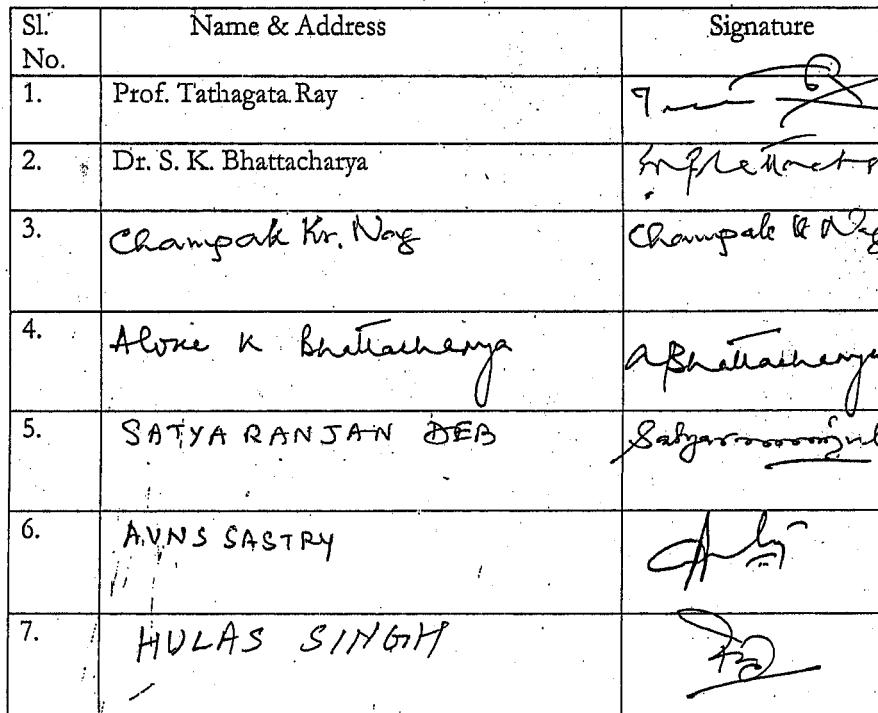 Sl. No. Name & Address Signature
1. Prof. Tathagata Ray
2. Dr. S. K. Bhattacharya
3. Champak Kr. Nag Champak K Nag
4. Aloke K Bhattacharya ABhattacharya
5. SATYA RANJAN DEB
6. AVNS SASTRY
7. HULAS SINGH